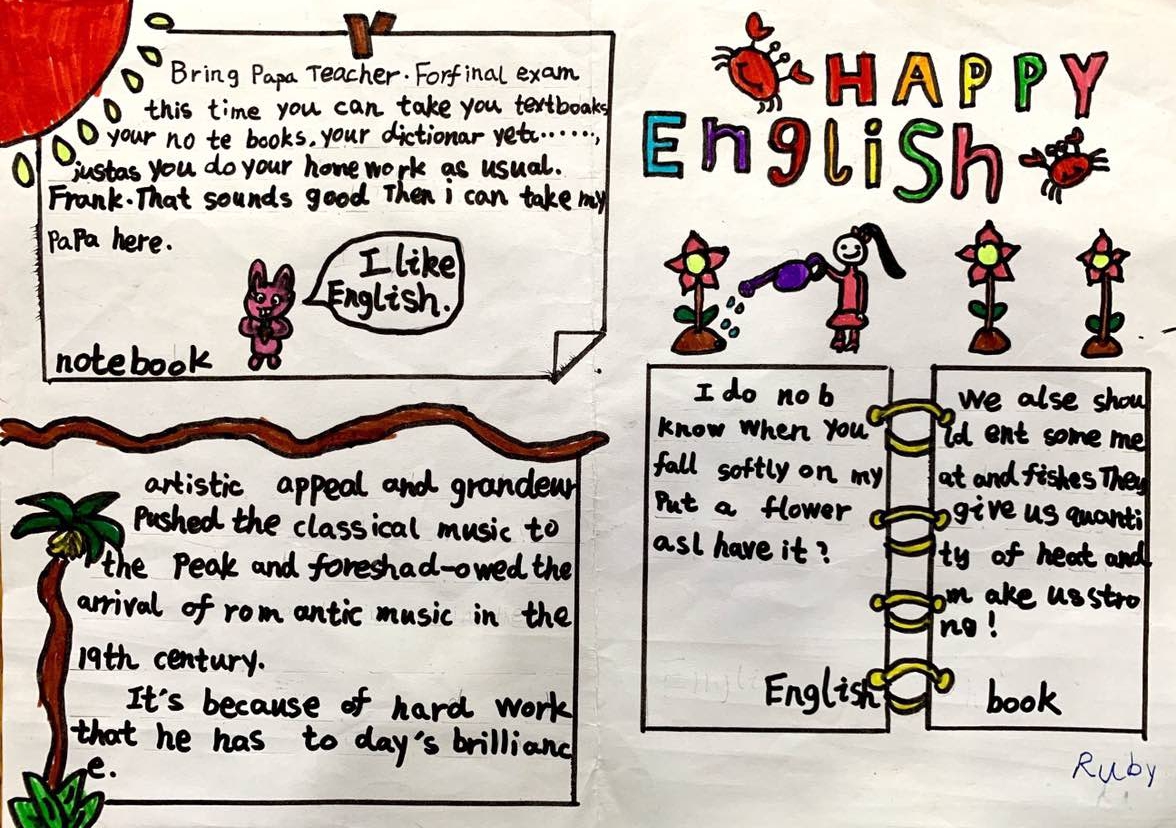 Bring Papa Teacher. Forfinal exam
this time you can take you textbooks
your no te books, your dictionar yetc......,
justas you do your home work as usual.
Frank. That sounds good Then i can take my
PaPa here.
I like
English.
notebook
artistic appeal and grandeur
Pushed the classical music to
the Peak and foreshad-owed the
arrival of rom antic music in the
19th century.
It's because of hard work
that he has to day's brillianc
e.
HAPPY
English
I do no b
know when you
fall softly on my
Put a flower
asl have it?
English
We alse shou
ld ent some me
at and fishes They
give us quanti
ty of heat and
m ake usstro
ng!
book
Ruby